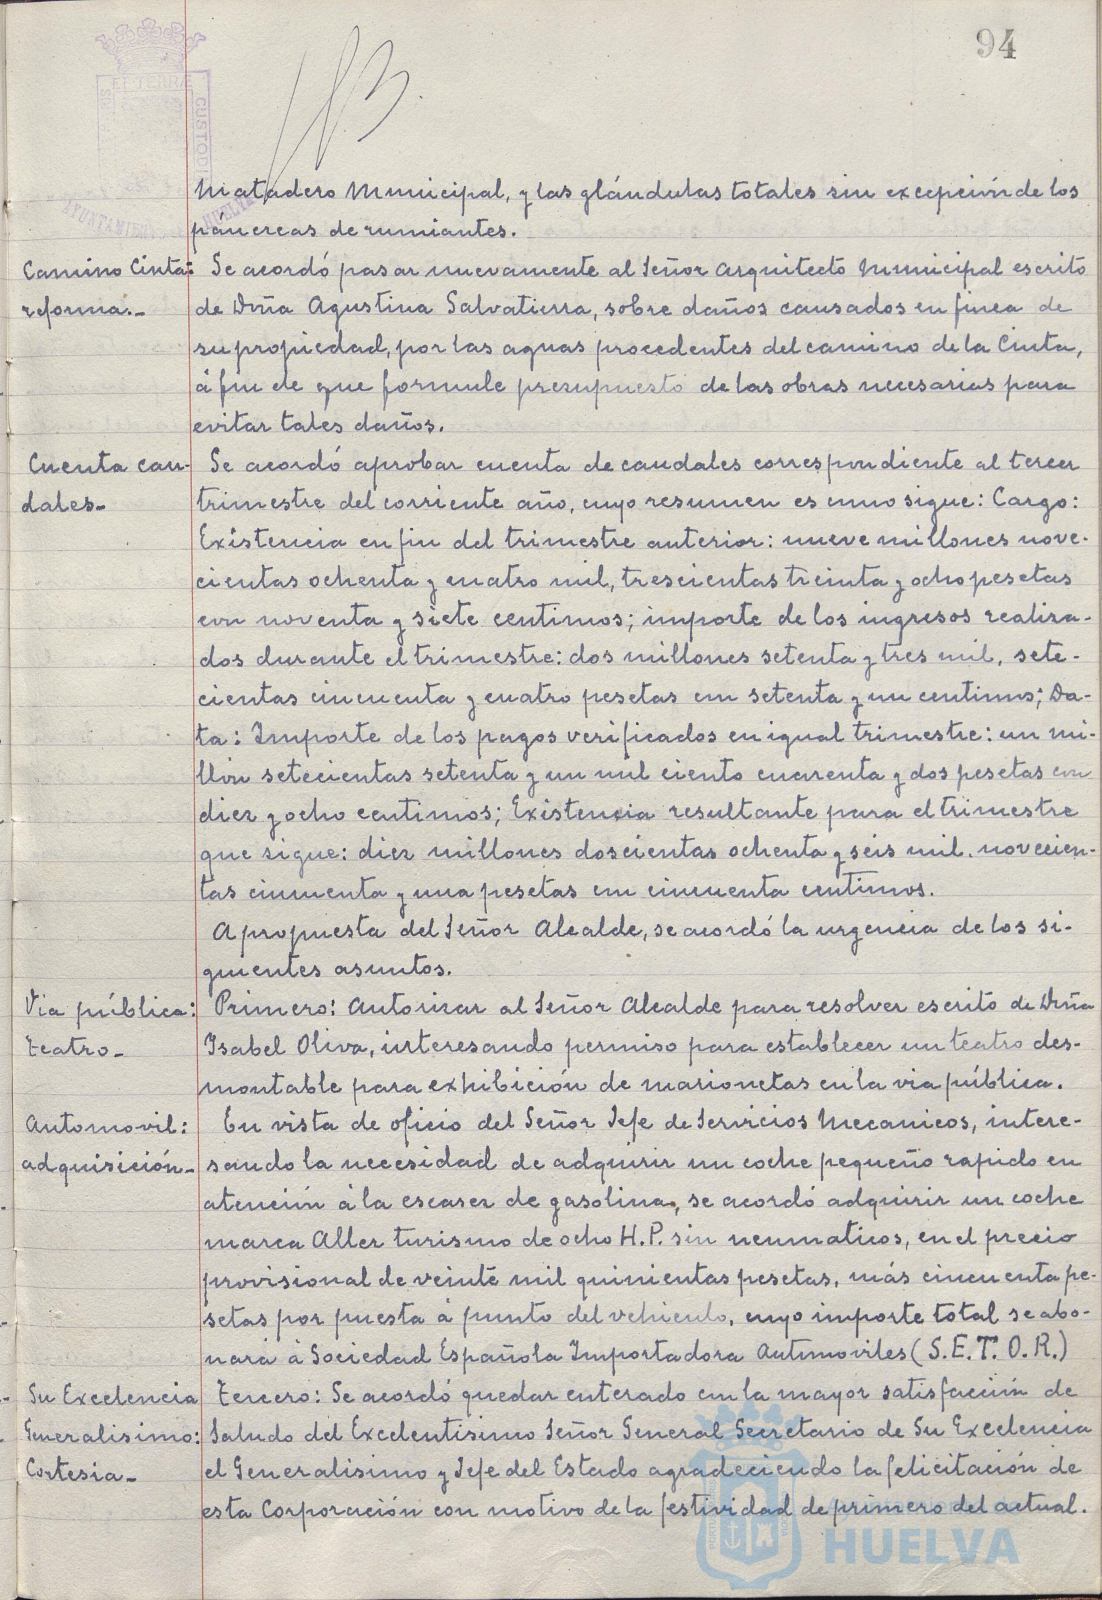 94
Matadero Municipal, y las glándulas totales sin excepción de los
páncreas de rumiantes.
Camino Cinta:
reforma.-
Se acordó pasar nuevamente al Señor Arquitecto Municipal escrito
de Dña Agustina Salvatierra, sobre daños causados en finca de
su propiedad, por las aguas procedentes del camino de la Cinta,
á fin de que formule presupuesto de las obras necesarias para
evitar tales daños.
Cuenta cau-
dales-
Se acordó aprobar cuenta de caudales correspondiente al tercer
trimestre del corriente año, cuyo resumen es como sigue: Cargo:
Existencia en fin del trimestre anterior: nueve millones nove-
cientas ochenta y cuatro mil, trescientas treinta y ocho pesetas
con noventa y siete centimos; importe de los ingresos realiza-
dos durante el trimestre: dos millones setenta y tres mil, sete-
cientas cincuenta y cuatro pesetas con setenta y un centimos; Da-
ta: Importe de los pagos verificados en igual trimestre: un mi-
llón setecientas setenta y un mil ciento cuarenta y dos pesetas con
diez y ocho centimos; Existencia resultante para el trimestre
que sigue: diez millones doscientas ochenta y seis mil, novecien-
tas cincuenta y una pesetas con cincuenta centimos.
A propuesta del Señor Alcalde, se acordó la urgencia de los si-
guientes asuntos.
Via pública:
Teatro-
Primero: Autorizar al Señor Alcalde para resolver escrito de Dña
Isabel Oliva, interesando permiso para establecer un teatro des-
montable para exhibición de marionetas en la via pública.
Automovil:
adquisición-
En vista de oficio del Señor Jefe de Servicios Mecanicos, intere-
sando la necesidad de adquirir un coche pequeño rapido en
atención á la escasez de gasolina, se acordó adquirir un coche
marca Aller turismo de ocho H.P. sin neumaticos, en el precio
provisional de veinte mil quinientas pesetas, más cincuenta pe-
setas por puesta á punto del vehiculo, cuyo importe total se abo-
nará á Sociedad Española Importadora Automoviles (S.E.T.O.R.)
Su Excelencia
Generalisimo:
Cortesia-
Tercero: Se acordó quedar enterado con la mayor satisfacción de
Saludo del Excelentisimo Señor General Secretario de Su Excelencia
el Generalisimo y Jefe del Estado agradeciendo la felicitación de
esta Corporación con motivo de la festividad de primero del actual.
HUELVA